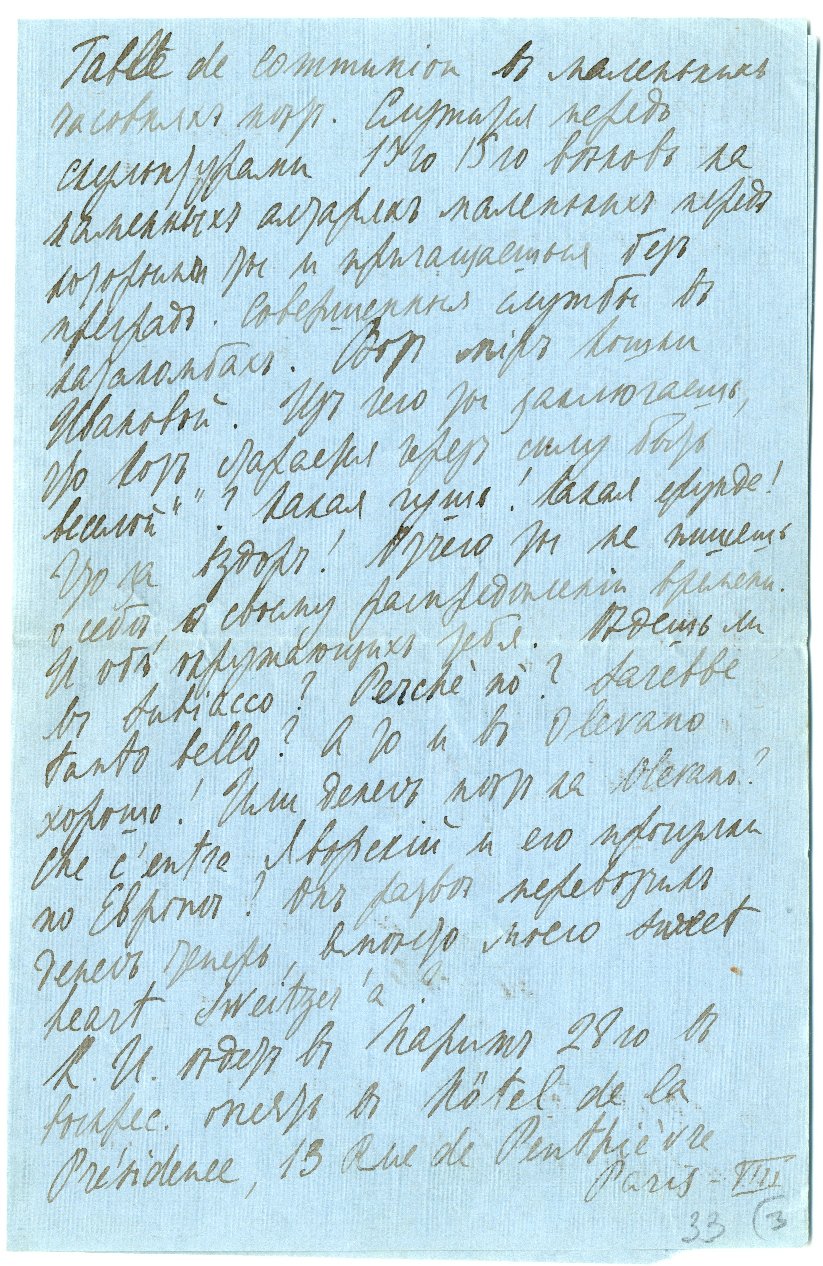 Table de communion въ маленькихъ
часовняхъ нѣтъ. Служится передъ
скульптурами 13го 15го вѣковъ на
каменныхъ алтаряхъ маленькихъ передъ
которыми ты и причащаешься безъ
преградъ. Совершенныя службы въ
катакомбахъ. Вотъ міръ кошки
Ивановой. Изъ чего ты заключаешь,
что котъ старается черезъ силу быть
веселой""? Какая чушь! Какая ерунде!
Что за вздоръ! Отчего ты не пишешь
о себѣ, о своему распредѣленіи времени.
И объ окружающихъ тебя. Ѣдешь ли
въ Subiacco? Perchè nò? Sarebbe
tanto bello? А то и въ Olevano
хорошо! Или денегъ нѣтъ на Olevano?
Che c'entra Яворскій и его прогулки
по Европѣ? Онъ развѣ перевозчикъ
денегъ теперь, вмѣсто моего sweet
heart Sweitzer'a?
К. И. ѣдетъ въ Парижъ 28го въ
воскрес. опять въ Hôtel de la
Présidence, 13 Rue de Penthièvre
Paris - VIII
33 3